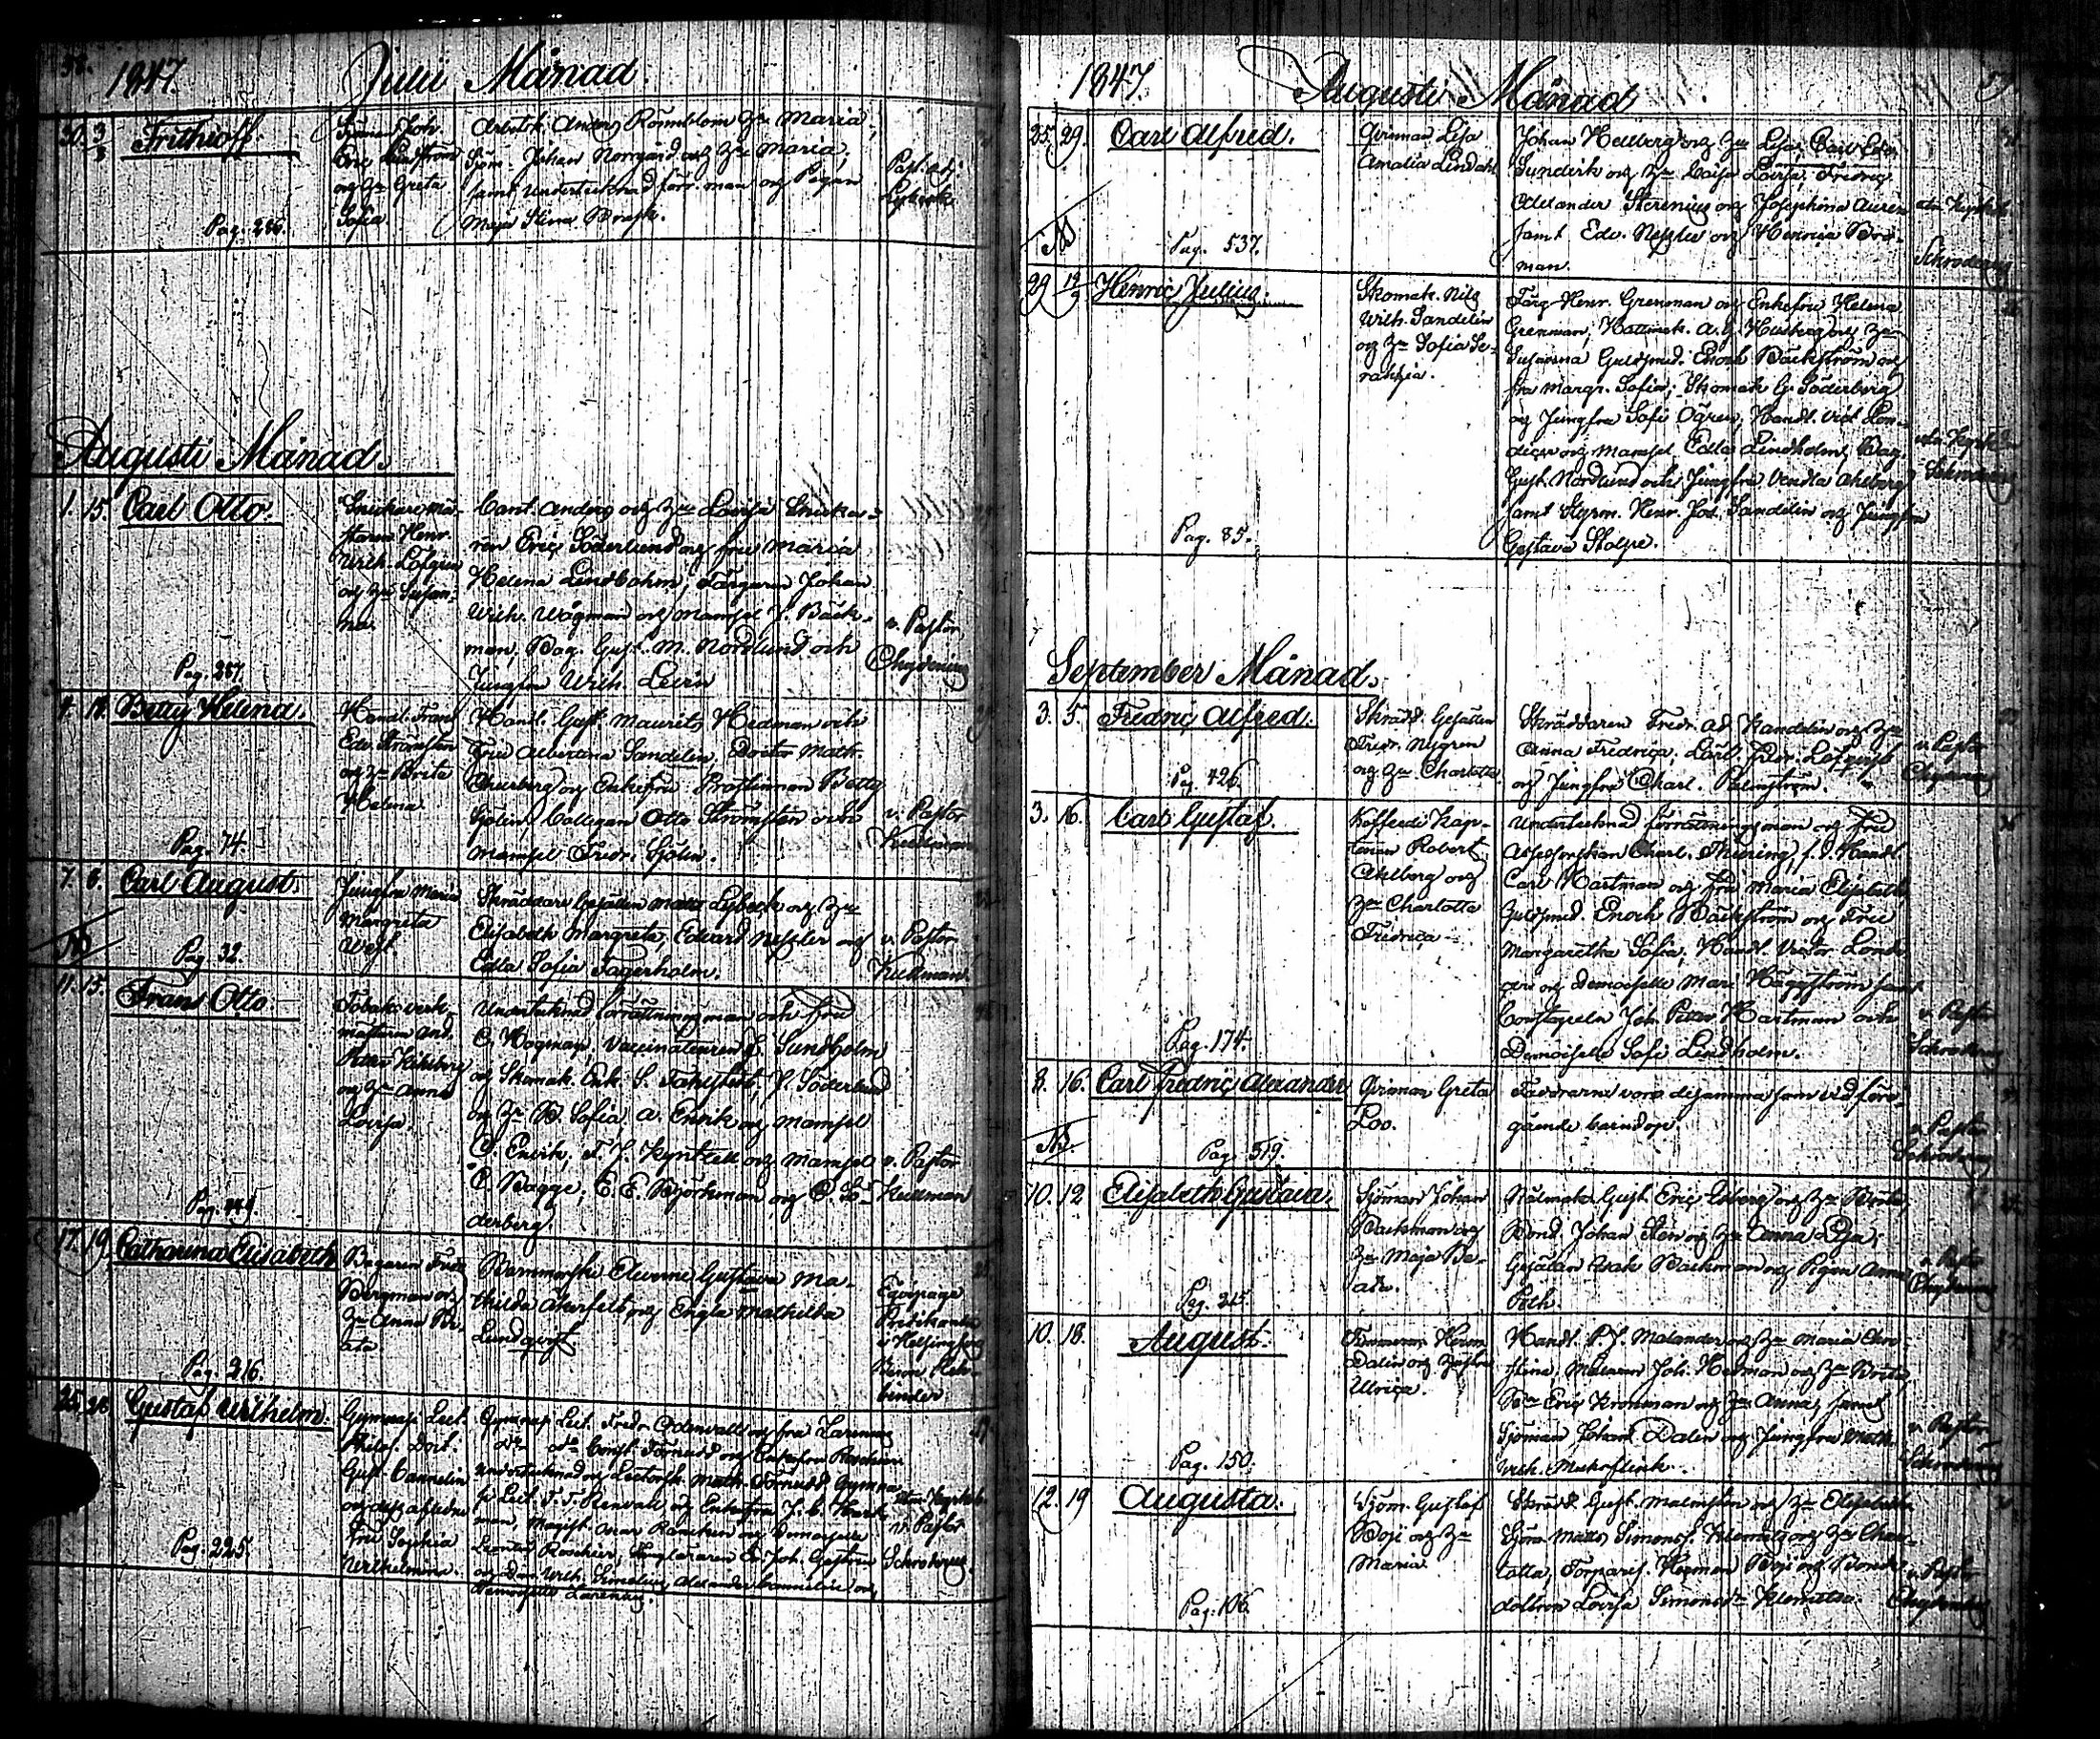 58.
1847. Julii Månad.
30. 3/8 Frithioff
Sjöman Joh.
Eric Lindström
och Hu Greta
Sofia
Arbetsk. Anders Rönnblom Hu Maria,
Sjöm. Johan Norrgård och Hu Maria,
samt undertecknad förr. man och Pigan
Maja Stina Brask.
Past. adj.
Pag. 286.
Augusti Månad.
1. 15. Carl Otto.
Snickare mä-
staren Henr.
Wilh. Löfgren
och Hu Susan-
na.
Cant. Anders och Hu Lovisa Snicka-
ren Eric Söderlund och fru Maria
Helena Lindbohm, Färgaren Johan
Wilh. Wågman och Mamsel J. Bäck-
man, Bag. Gust. M. Nordlund och
Jungfru Wilh. Levin
v. Pastor
Chydenius
Pag. 287.
4. 18. Betty Helena.
Handl. Frans
Edv. Strömsten
och Hu Brita
Helena
Handl. Gust. Mauritz Hedman och
Fru Albertina Sandelin, Doctor Math.
och Enkefru Prostinnan Betty
Sjölin, Collegan Otto Strömsten och
Mamsel Fredr. Sjölin.
v. Pastor
Keckman
Pag. 74.
7. 8. Carl August.
Jungfru Maria
Margreta
West.
Skräddare Gesällen Matts Lybeck och Hu
Elisabeth Margreta, Edvard Nessler och
Edla Sofia Fagerholm.
v. Pastor
Keckman
Pag. 32.
11. 15. Frans Otto
Fabriks verk-
mästaren And.
Petter
och Hu Anna
Lovisa.
Undertecknad förrättningsman och Fru
C. Wågman, Vaccinateuren J. Sundholm
och Skomak. Enk. S. J. Söderlund
och Hu B. Sofia, A. Envik och Mamsel
C. Envik, F. J. Kyntzell och Mamsel
C. Bagge, E. E. Björkman och C. Sö-
derberg.
v. Pastor
Keckman
17. 19. Catharina Elisabeth
Bagaren Fredr.
Bergman och
Hu Anna Be-
ata.
Barnmorske Eleverne Gustava Ma-
thilda Åkerfelt och Engla Mathilda
Lundqvist
Equipage
Predikanten
i Helsingfors
Pag. 216.
25. 28 Gustaf Wilhelm.
Gymnasii Lect.
Philos. Doct.
Gust. Cannelin
och dess afledne
Fru Sophia
Wilhelmina.
Gymnasii Lect. Fredr. Odenvall och fru
undertecknad och Lectorsk. Math. Törnudd, Gymna-
sii Lect. T. T. Renvall och Enkefru J. C. Hart-
man, Magist. Oscar Ranckén och Demoiselle
Leontin Roschier, Joh.
och Dem. Wilh. Simelius, Alexander Cannelin och
Demoiselle
v. Pastor
Schroderus.
Pag. 225.
1847 Augusti Månad 59.
25. 29. Carl Alfred.
Qvinnan Lisa
Amalia Lindahl
Johan Hellberg och Hu Lisa, Carl Edv.
Sunderk och Hu Caisa Lovisa, Fredric
Alexander Sterenius och Josephina Auren
samt Edv. Nessler och Henrica Bro-
man.
Schroderus
Pag. 537.
29 12/9 Henric Julius.
Skomak. Nils
Wilh. Sandelin
och Hu Sofia Se-
rahfia.
Färg. Henr. Grenman och Enkefru Helena
Grenman, Hattmak. A. G. Husberg och Hu
Susanna Guldsmed. Enoch Bäckström och
fru Margr. Sofia; Skomak. G. Söderberg
och Jungfru Sofi Ögren, Handl. Vict. Lon-
dicer och Mamsel Edla Lindholm, Bag.
Gust. Nordlund och Jungfru Vendla Ahlberg
samt Styrm. Henr. Jos. Sandelin och Jungfru
Gustava Stolpe.
Schroderus
Pag. 85.
September Månad.
3. 5. Fredric Alfred.
Skrädd. Gesällen
Fredr. Nygren
och Hu Charlotta
Skräddaren Fredr. Ad. Kandelin och Hu
Anna Fredrica, Lärl. Fredr. Löfqvist
och Jungfru Charl. Palmström.
v. Pastor
Chydenius
Pag. 426.
3. 16. Carl Gustaf.
Koffardi Kap-
tenen Robert
Ahlberg och
Hu Charlotta
Fredrica
Undertecknad förrättningsman och Fru
Assessorskan Charl. Thuring, f. d. Handl.
Carl Hartman och Fru Maria Elisabeth,
Guldsmed. Enoch Bäckström och Fru
Margaretha Sofia, Handl. Victor Londi-
cer och Demoiselle Mari Häggström samt
Constapeln Joh. Petter Hartman och
Demoiselle Sofi Lindholm.
v. Pastor
Schroderus
Pag. 174.
8. 16. Carl Fredric Alexander
Qvinnan Greta
Loo.
Faddrarne voro desamma som vid före-
gående barndop.
v. Pastor
Schroderus
Pag. 519.
10. 12 Elisabeth Gustava.
Sjöman Johan
Backman och
Hu Maja Be-
ata.
Nålmak. Gust. Eric Esberg och Hu Brita,
Bond. Johan Sten och Hu Anna Lisa;
Gesällen Isak Backman och Pigan Anna
v. Pastor
Chydenius
Pag. 215.
10. 18. August.
Herm.
Dalin och Hustru
Ulrica.
Handl. P. J. Malander och Hu Maria Chri-
stina, Målaren Joh. Hedman och Hu Brita,
Bn Eric Kronman och Hu Anna, samt
Sjöman Johan Dalin och Jungfru Math.
Wilh.
v. Pastor
Schroderus
Pag. 150.
12. 19 Augusta.
Sjöm. Gustaf
Bosi och Hu
Maria.
Skrädd. Gust. Malmsten och Hu Elisabeth
Sjöm. Matts Simonss. Klemets och Hu Char-
lotta, Torpares. Herman Bosi och Bonde-
dottren Lovisa Simonsdr Klemets.
v. Pastor
Chydenius
Pag. 106.